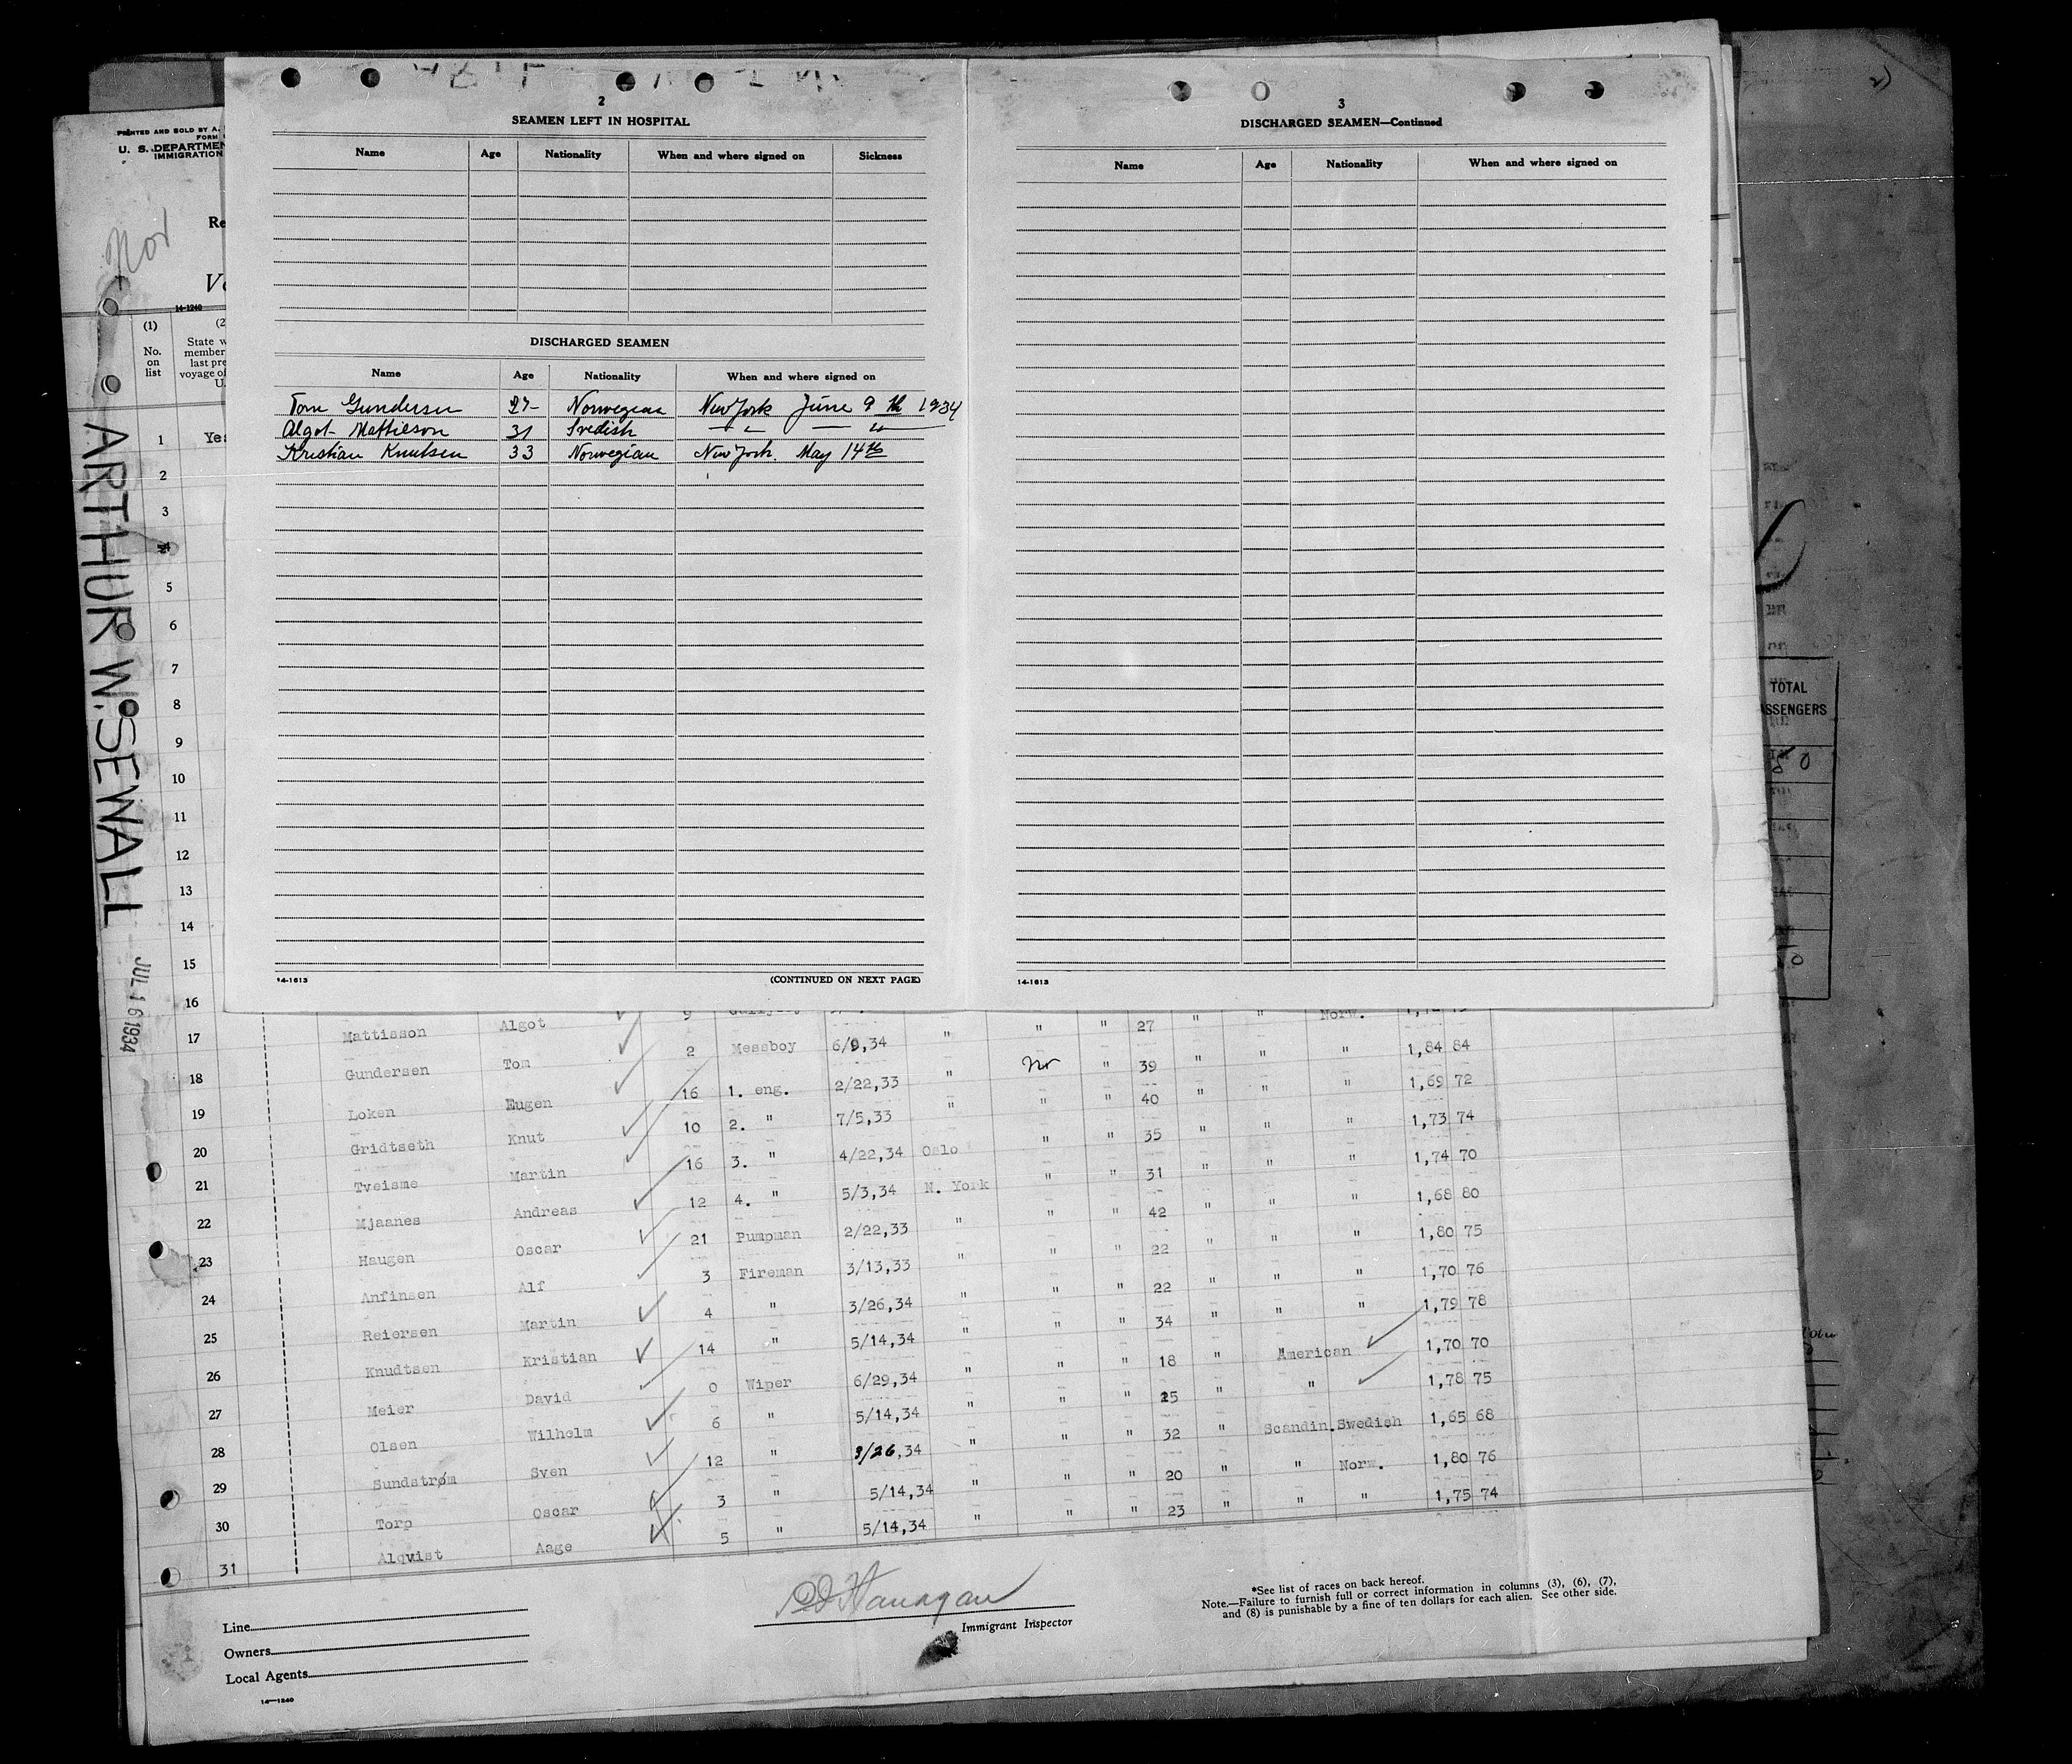 2
SEAMEN LEFT IN HOSPITAL
Name Age Nationality When and where signed on Sickness
DISCHARGED SEAMEN
Name Age Nationality When and where signed on
Tom Gundersen 27 Norwegian New York June 9 th 1934
Algot Mattieson 31 Svedish — " — "
Kristian Knutsen 33 Norwegian New York. May 14th
14-1613 (CONTINUED ON NEXT PAGE)
3
DISCHARGED SEAMEN—Continued
Name Age Nationality When and where signed on
14-1613
2)
PRINTED AND SOLD BY A.
FORM
U. S. DEPARTMEN
IMMIGRATION
Nor
Re
V
14-1240
(1) (2
No. on list
State w
member
last pre
voyage of
U.
ARTHUR W. SEWALL
JUL 16 1934
TOTAL
SSENGERS
1 Yes
2
3
4
5
6
7
8
9
10
11
12
13
14
15
16
17 Mattisson Algot 9 Norw.
18 Gundersen Tom 2 Messboy 6/9,34 " " " 27 " " " 1,84 84
19 Loken Eugen 16 1. eng. 2/22,33 " no " 39 " " " 1,69 72
20 Gridtseth Knut 10 2. " 7/5,33 " " " 40 " " " 1,73 74
21 Tveisme Martin 16 3. " 4/22,34 Oslo " " 35 " " " 1,74 70
22 Mjaanes Andreas 12 4. " 5/3,34 N. York " " 31 " " " 1,68 80
23 Haugen Oscar 21 Pumpman 2/22,33 " " " 42 " " " 1,80 75
24 Anfinsen Alf 3 Fireman 3/13,33 " " " 22 " " " 1,70 76
25 Reiersen Martin 4 " 3/26,34 " " " 22 " " " 1,79 78
26 Knudtsen Kristian 14 " 5/14,34 " " " 34 " American 1,70 70
27 Meier David 0 Wiper 6/29,34 " " " 18 " " 1,78 75
28 Olsen Wilhelm 6 " 5/14,34 " " " 25 " Scandin. Swedish 1,65 68
29 Sundstrøm Sven 12 " 3/26,34 " " " 32 " " Norw. 1,80 76
30 Torp Oscar 3 " 5/14,34 " " " 20 " " " 1,75 74
31 Alqvist Aage 5 " 5/14,34 " " " 23 "
Immigrant Inspector
*See list of races on back hereof.
Note.—Failure to furnish full or correct information in columns (3), (6), (7),
and (8) is punishable by a fine of ten dollars for each alien. See other side.
Line
Owners
Local Agents
14—1240